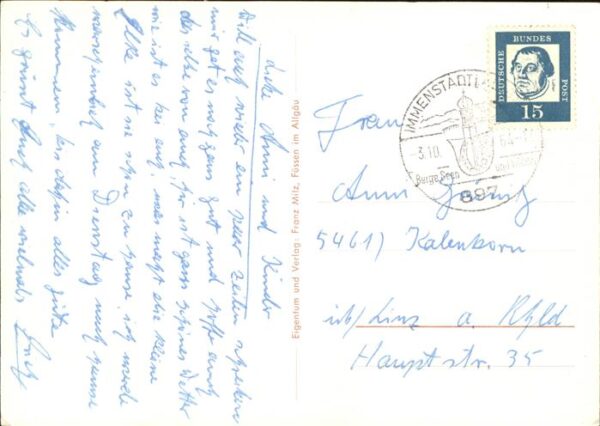 Liebe Anni und Kinder
Will auch wieder ein paar Zeilen schreiben
mir get es noch ganz gut und hoffe auch
das selbe von euch, hir ist ganz schönes Wetter
wie ist es bei euch, was macht die kleine
Elke ist sie schon zu hause, ich werde
am Dinstag nach hause
kommen, bis dahin alles gute
Es grüsst Euch alle vielmals
Eigentum und Verlag: Franz Milz, Füssen im Allgäu
DEUTSCHE BUNDES POST
15
IMMENSTADT
3.10. 64
Berge Seen
897
Frau
Anna
5461) Kalenborn
üb/Linz a. Rhld
Hauptstr. 35